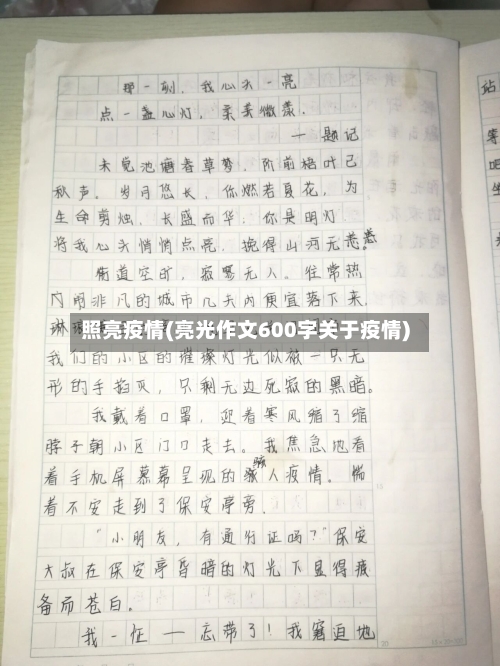 那一刻，我心头一亮
点一盏心灯，亲美微漾．
——题记
未觉池塘春草梦，阶前梧叶已
秋声。岁月悠长，你燃若夏花，为
生命剪烛，长盛而华，你是明灯
将我心头悄悄点亮，挽得山河无恙。
街道空旷，寂寥无人。往常热
闹非凡的城市几天内便宜落下来
琳
照亮疫情(亮光作文600字关于疫情)
我们的小区的璀璨灯光似被一只无
形的手掐灭，只剩无边死寂的黑暗。
我戴着口罩，迎着寒风缩了缩
脖子朝小区门口走去。我焦急地看
着手机屏幕幕呈现的骇人疫情。惴
着不安走到了保安亭旁。
“小朋友，有通行证吗？”保安
大叔在保安亭昏暗的灯光下显得疲
备而苍白。
我一怔——忘带了！我窘迫地
站
等